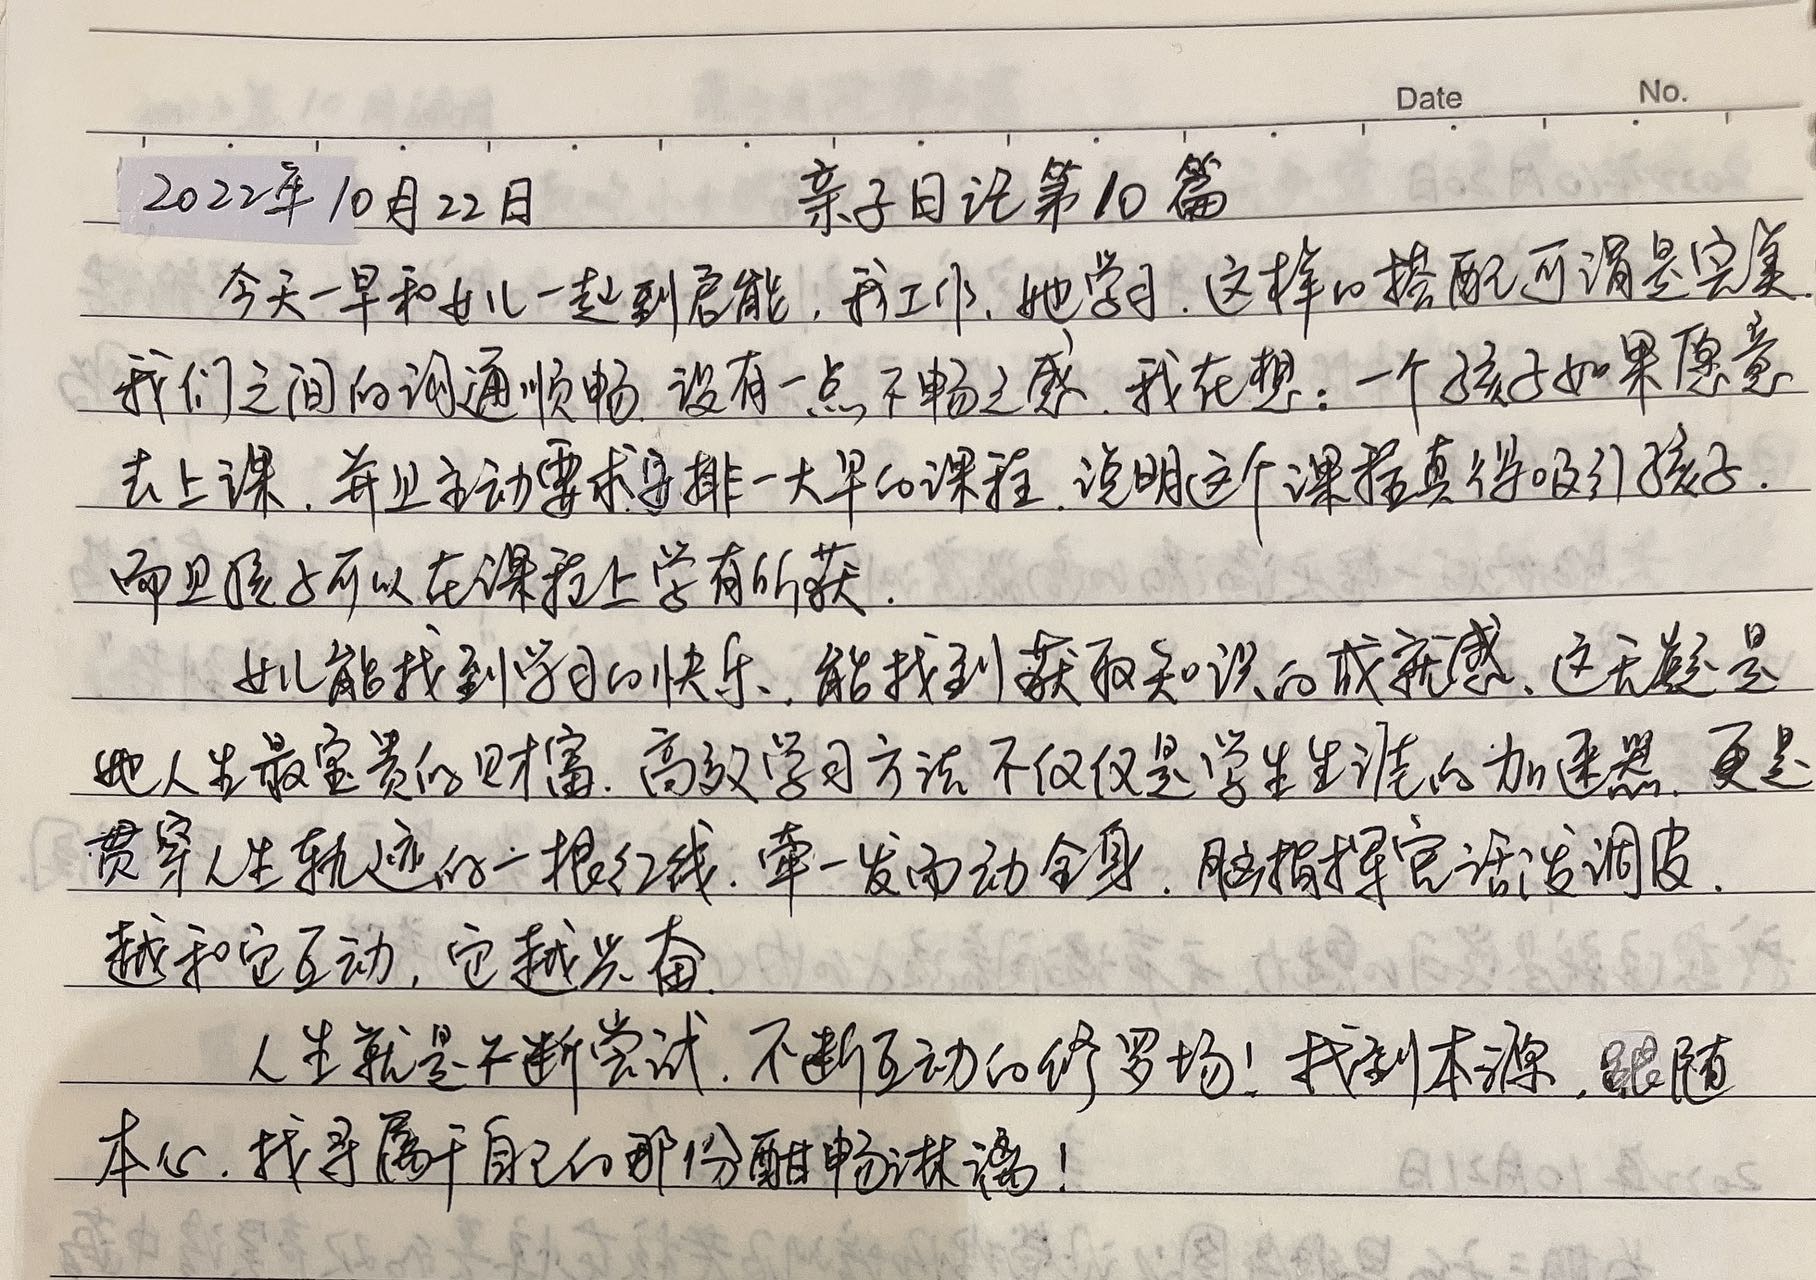 Date No.
2022年10月22日 亲子日记第10篇
今天一早和女儿一起到启能,我工作、她学习.这样的搭配可谓是完美.
我们之间的沟通顺畅.没有一点不畅之感.我在想:一个孩子如果愿意
去上课.并且主动要求安排一大早的课程.说明这个课程真得吸引孩子.
而且孩子可以在课程上学有所获.
女儿能找到学习的快乐、能找到获取知识的成就感、这无疑是
她人生最宝贵的财富.高效学习方法不仅仅是学生生涯的加速器.更是
贯穿人生轨迹的一根红线.牵一发而动全身.脑指挥官活泼调皮.
越和它互动,它越兴奋.
人生就是不断尝试.不断互动的修罗场!找到本源.跟随
本心.找寻属于自己的那份酣畅淋漓!